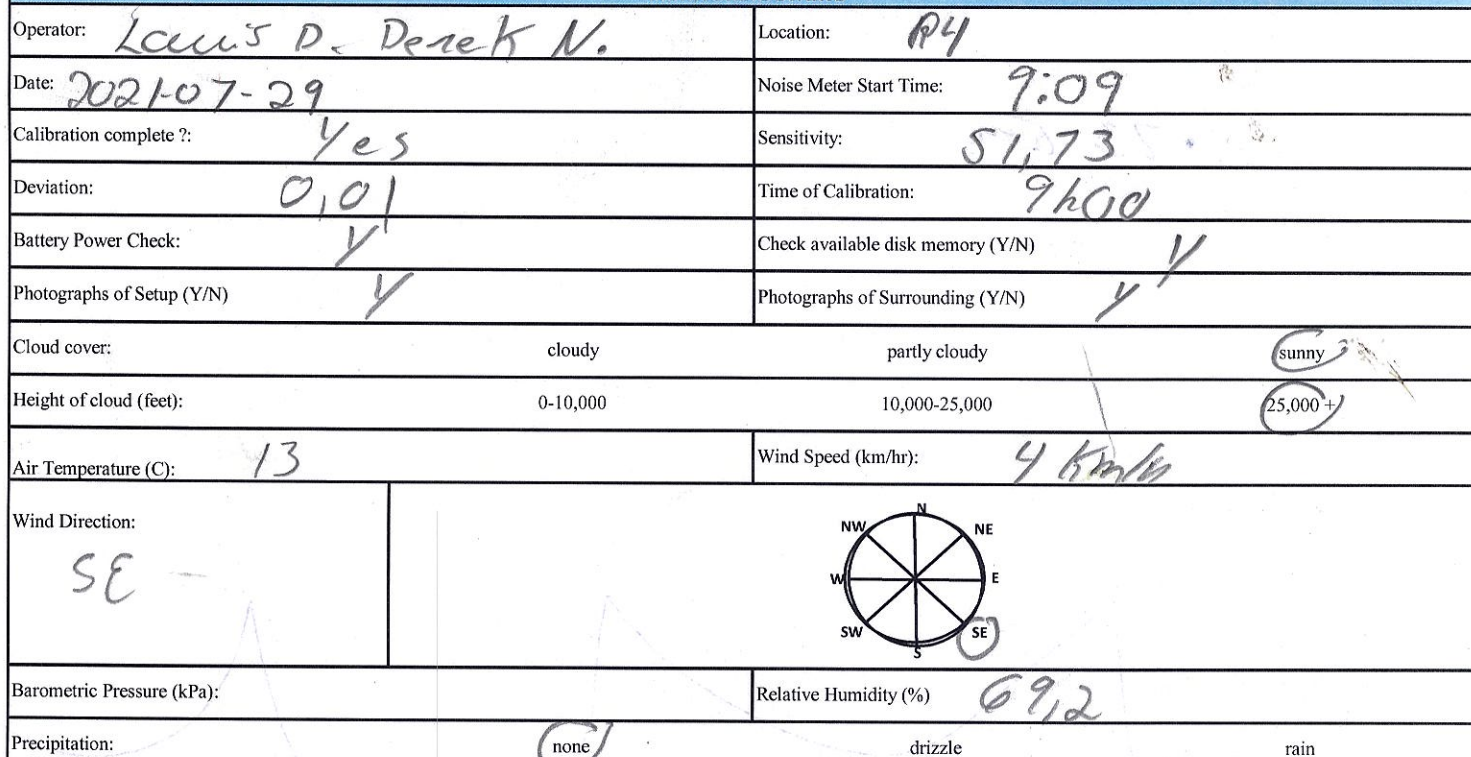 Operator: Louis D. Derek N. Location: R4
Date: 2021-07-29 Noise Meter Start Time: 9:09
Calibration complete ?: Yes Sensitivity: 51,73
Deviation: 0,01 Time of Calibration: 9h00
Battery Power Check: Y Check available disk memory (Y/N) Y
Photographs of Setup (Y/N) Y Photographs of Surrounding (Y/N) Y
Cloud cover: cloudy partly cloudy sunny
Height of cloud (feet): 0-10,000 10,000-25,000 25,000 +
Air Temperature (C): 13 Wind Speed (km/hr): 4 Km/h
Wind Direction:
SE
N
NW NE
W E
SW SE
S
Barometric Pressure (kPa): Relative Humidity (%) 69,2
Precipitation: none drizzle rain